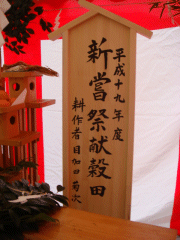 平成十九年度
新嘗祭献穀田
耕作者 目加田菊次